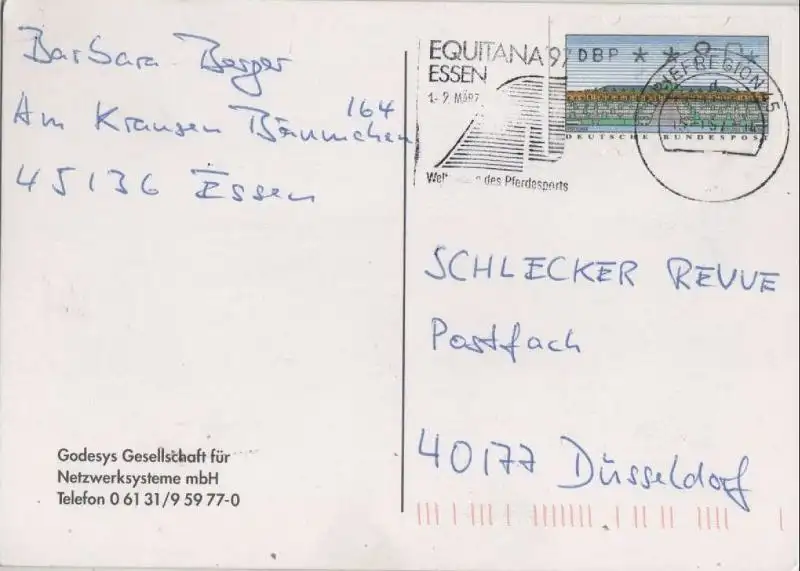 Barbara Berger
164
Am Krausen Bäumchen
45136 Essen
Godesys Gesellschaft für
Netzwerksysteme mbH
Telefon 0 61 31/9 59 77-0
EQUITANA '97
ESSEN
1.-9. MÄRZ
des Pferdesports
DBP
DEUTSCHE BUNDESPOST
BRIEFREGION 45
SCHLECKER REVUE
Postfach
40177 Düsseldorf